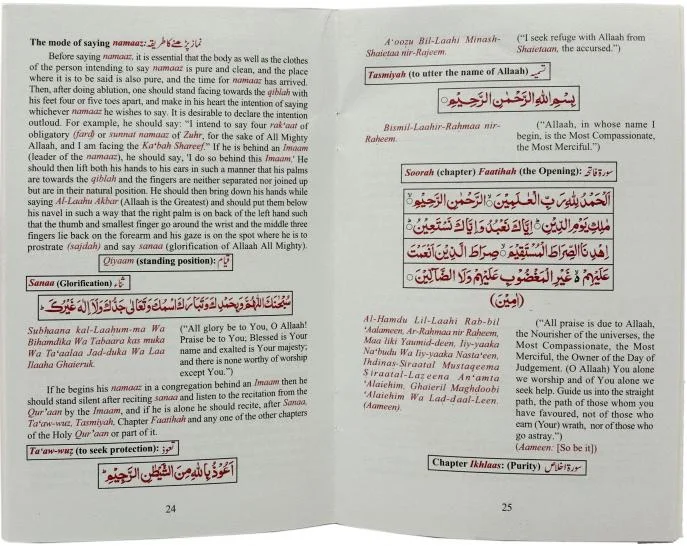 The mode of saying namaaz: نماز پڑھنے کا طریقہ:
Before saying namaaz, it is essential that the body as well as the clothes
of the person intending to say namaaz is pure and clean, and the place
where it is to be said is also pure, and the time for namaaz has arrived.
Then, after doing ablution, one should stand facing towards the qiblah with
his feet four or five toes apart, and make in his heart the intention of saying
whichever namaaz he wishes to say. It is desirable to declare the intention
outloud. For example, he should say: “I intend to say four rak'aat of
obligatory (fard) or sunnat namaaz of Zuhr, for the sake of All Mighty
Allaah, and I am facing the Ka'bah Shareef.” If he is behind an Imaam
(leader of the namaaz), he should say, 'I do so behind this Imaam.' He
should then lift both his hands to his ears in such a manner that his palms
are towards the qiblah and the fingers are neither separated nor joined up
but are in their natural position. He should then bring down his hands while
saying Al-Laahu Akbar (Allaah is the Greatest) and should put them below
his navel in such a way that the right palm is on the back of the left hand such
that the thumb and smallest finger go around the wrist and the middle three
fingers lie back on the forearm and his gaze is on the spot where he is to
prostrate (sajdah) and say sanaa (glorification of Allaah All Mighty).
Qiyaam (standing position): قیام
Sanaa (Glorification) ثناء
سُبْحٰنَكَ اللّٰهُمَّ وَبِحَمْدِكَ وَتَبَارَكَ اسْمُكَ وَتَعَالٰى جَدُّكَ وَلَآ اِلٰهَ غَيْرُكَ ؕ
Subhaana kal-Laahum-ma Wa
Bihamdika Wa Tabaara kas muka
Wa Ta'aalaa Jad-duka Wa Laa
Ilaaha Ghaieruk.
(“All glory be to You, O Allaah!
Praise be to You; Blessed is Your
name and exalted is Your majesty;
and there is none worthy of worship
except You.”)
If he begins his namaaz in a congregation behind an Imaam then he
should stand silent after reciting sanaa and listen to the recitation from the
Qur'aan by the Imaam, and if he is alone he should recite, after Sanaa,
Ta'aw-wuz, Tasmiyah, Chapter Faatihah and any one of the other chapters
of the Holy Qur'aan or part of it.
Ta'aw-wuz (to seek protection): تعوذ
اَعُوْذُ بِاللّٰهِ مِنَ الشَّيْطٰنِ الرَّجِيْمِ ؕ
24
A'oozu Bil-Laahi Minash-
Shaietaa nir-Rajeem.
(“I seek refuge with Allaah from
Shaietaan, the accursed.”)
Tasmiyah (to utter the name of Allaah) تسمیہ
بِسْمِ اللّٰهِ الرَّحْمٰنِ الرَّحِيْمِ
Bismil-Laahir-Rahmaa nir-
Raheem.
(“Allaah, in whose name I
begin, is the Most Compassionate,
the Most Merciful.”)
Soorah (chapter) Faatihah (the Opening): سورۃ فاتحہ
اَلْحَمْدُ لِلّٰهِ رَبِّ الْعٰلَمِيْنَ ۙ الرَّحْمٰنِ الرَّحِيْمِ ۙ
مٰلِكِ يَوْمِ الدِّيْنِ ؕ اِيَّاكَ نَعْبُدُ وَاِيَّاكَ نَسْتَعِيْنُ ؕ
اِهْدِنَا الصِّرَاطَ الْمُسْتَقِيْمَ ۙ صِرَاطَ الَّذِيْنَ اَنْعَمْتَ
عَلَيْهِمْ ۙ غَيْرِ الْمَغْضُوْبِ عَلَيْهِمْ وَلَا الضَّآلِّيْنَ
(اٰمِيْن)
Al-Hamdu Lil-Laahi Rab-bil
'Aalameen, Ar-Rahmaa nir Raheem,
Maa liki Yaumid-deen, Iiy-yaaka
Na'budu Wa Iiy-yaaka Nasta'een,
Ihdinas-Siraatal Mustaqeema
Siraatal-Lazeena An'amta
'Alaiehim, Ghaieril Maghdoobi
'Alaiehim Wa Lad-daal-Leen.
(Aameen).
(“All praise is due to Allaah,
the Nourisher of the universes, the
Most Compassionate, the Most
Merciful, the Owner of the Day of
Judgement. (O Allaah) You alone
we worship and of You alone we
seek help. Guide us into the straight
path, the path of those whom you
have favoured, not of those who
earn (Your) wrath, nor of those who
go astray.”)
(Aameen: [So be it])
Chapter Ikhlaas: (Purity) سورۃ اخلاص
25